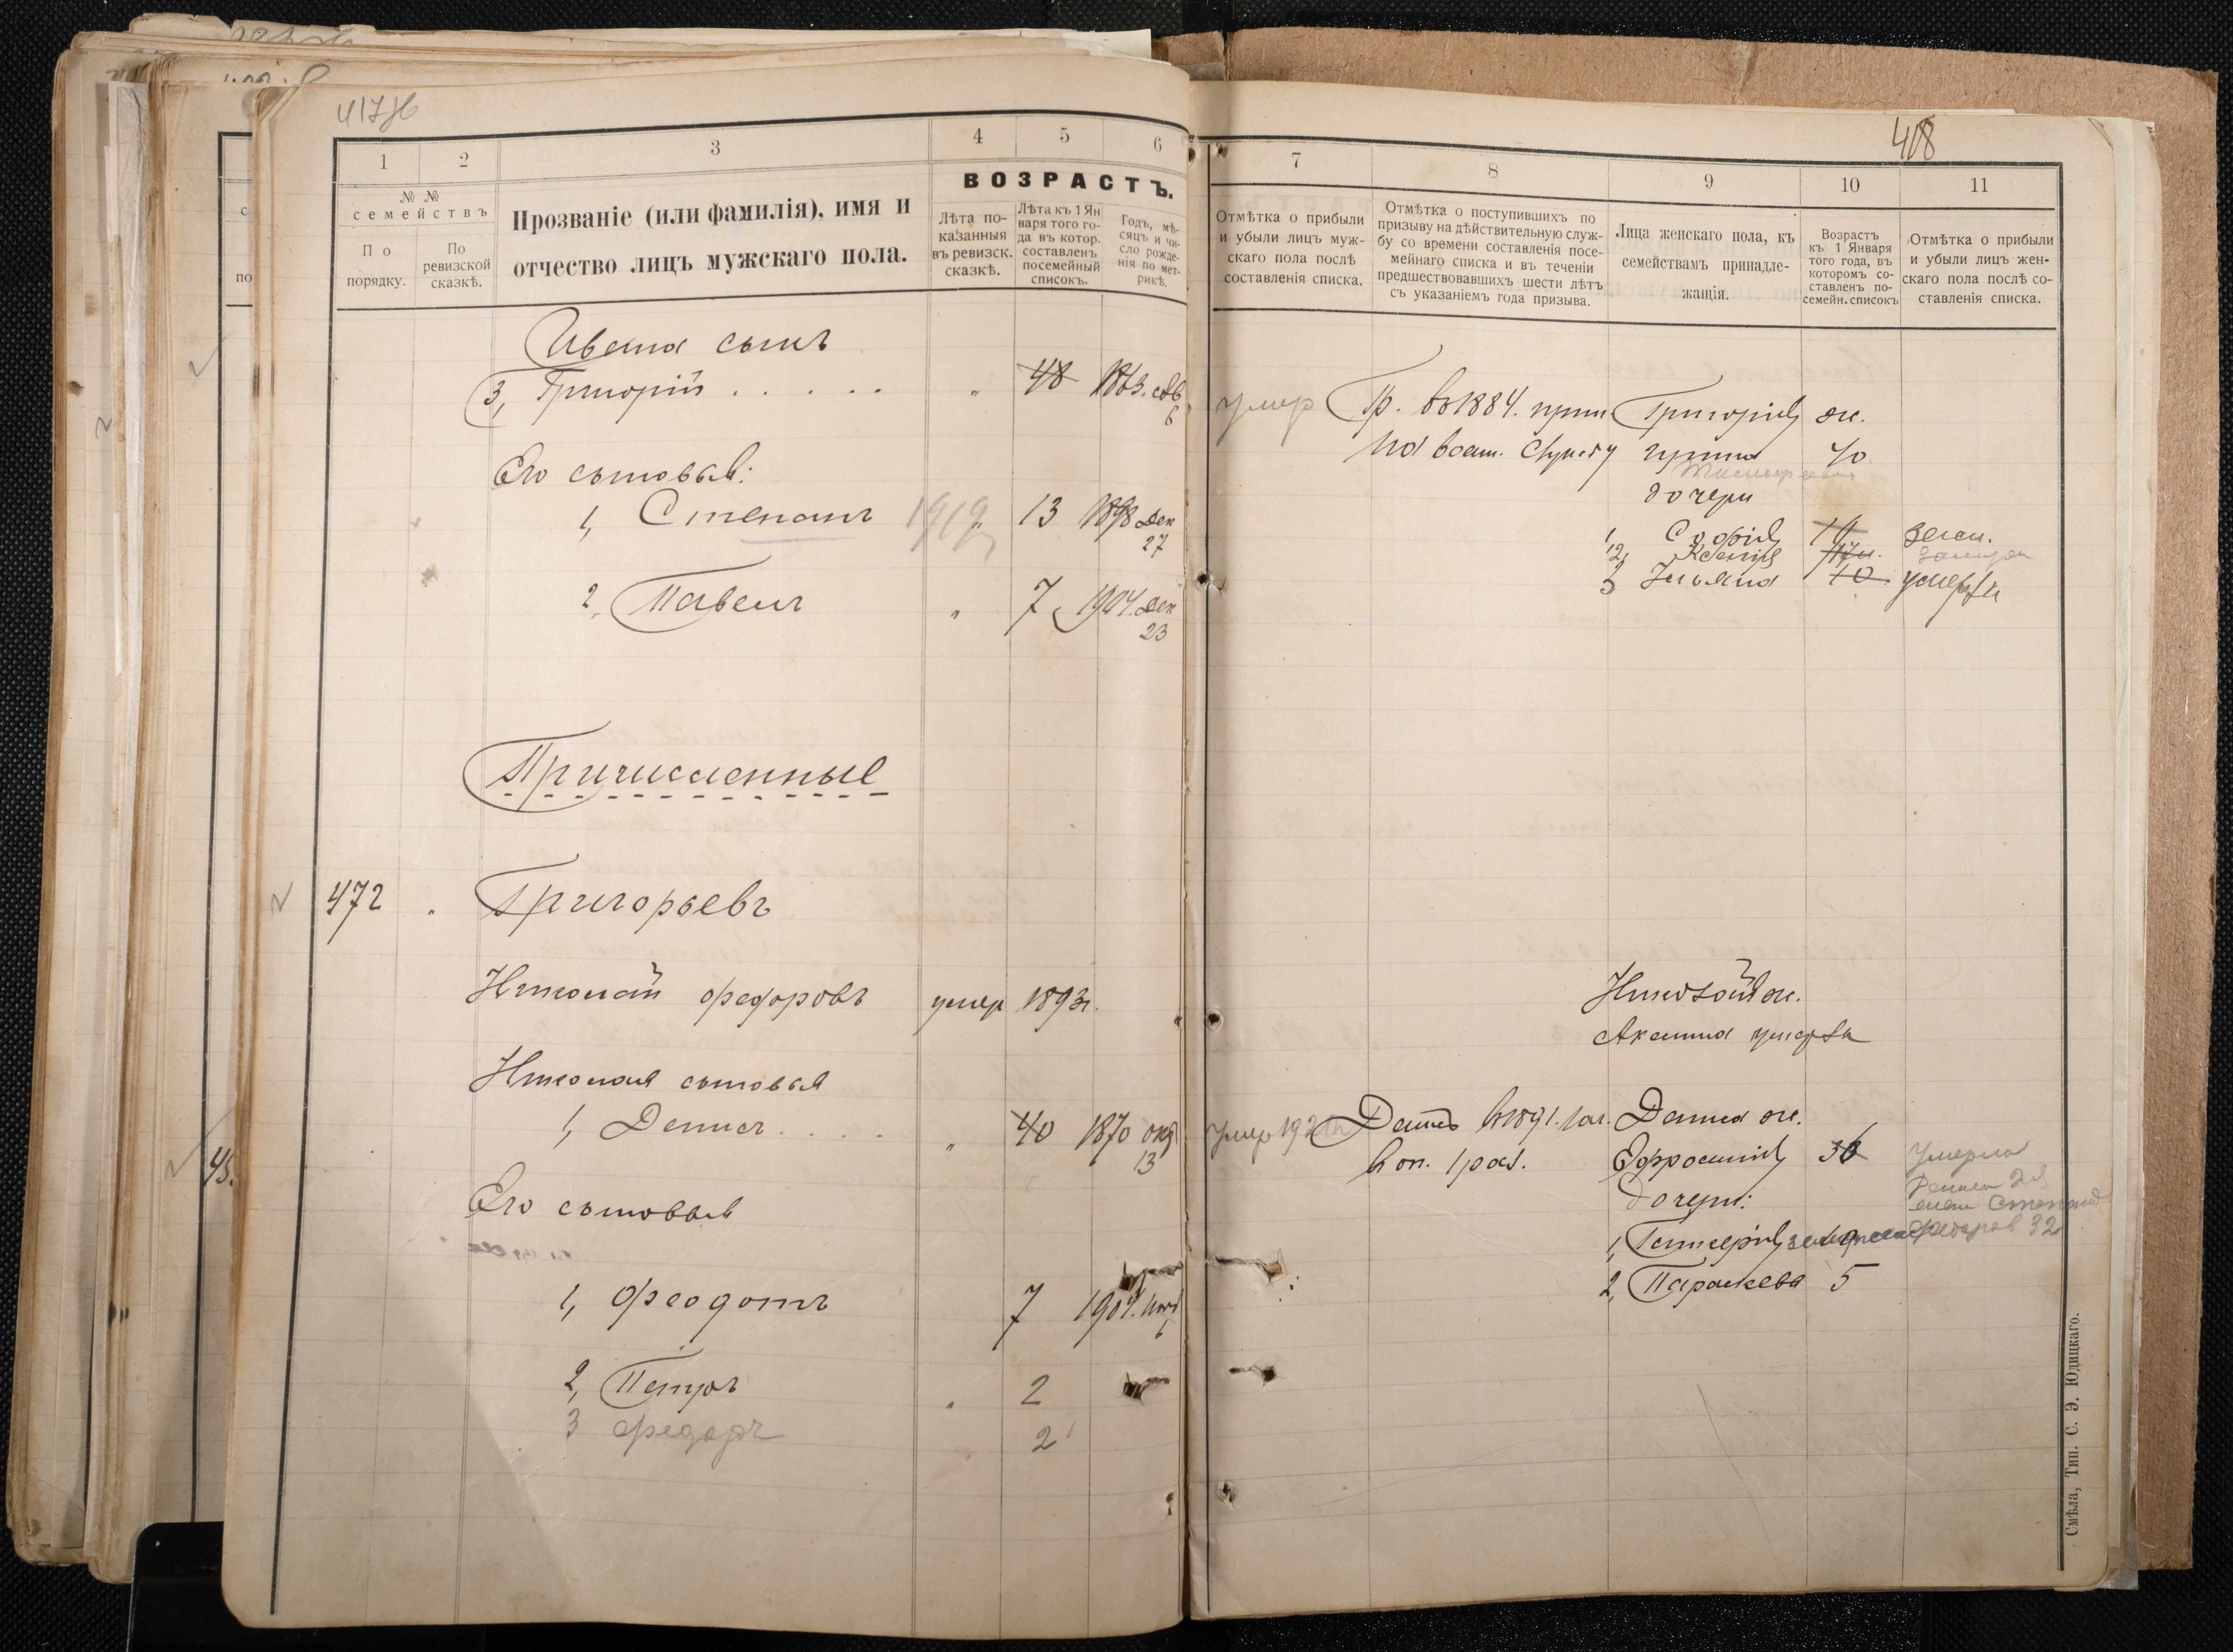 417об
1
2
3
4
5
6
№ №
семействъ
По порядку.
По ревизской сказкѣ.
Прозваніе (или фамилія), имя и
отчество лицъ мужскаго пола.
ВОЗРАСТЪ.
Лѣта по-
казанныя
въ ревизск.
сказкѣ.
Лѣта къ 1 Ян
варя того го-
да въ котор.
составленъ
посемейный
списокъ.
Годъ, мѣ-
сяцъ и чи-
сло рожде-
нія по мет-
рикѣ.
Ивана сынъ
3, Григорій . . . . . „ 48 1863.
6
Его сыновья:
1, Степанъ 1919 „ 13 1898 Дек
27
2, Павелъ „ 7 1904. Дек
23
Причисленные
472 „ Григорьевъ
Николай Федоровъ умер 1893г.
Николая сыновья
1, Денис . . . . „ 40 1870 окт
13
Его сыновья
1, Феодотъ 7 1904. Нояб
6
2, Петръ „ 2
3 Федоръ 2
45.
418
7
8
9
10
11
Отмѣтка о прибыли
и убыли лицъ муж-
скаго пола послѣ
составленія списка.
Отмѣтка о поступившихъ по
призыву на дѣйствительную служ-
бу со времени составленія посе-
мейнаго списка и въ теченіи
предшествовавшихъ шести лѣтъ
съ указаніемъ года призыва.
Лица женскаго пола, къ
семействамъ принадле-
жащія.
Возрастъ
къ 1 Января
того года, въ
которомъ со-
ставленъ по-
семейн. списокъ
Отмѣтка о прибыли
и убыли лицъ жен-
скаго пола послѣ со-
ставленія списка.
умер Гр. в 1884. прин Григорія ж.
на воен. службу 40
дочери
1, Софія зам.
2, Ксенія замужем
3 Ульяна 10 умерла
Николая ж.
Аксинья умерла
умер Денис в 1891. Дениса ж.
в оп. 1 раз. Ефросинія 36 Умерла
дочери: Дениса 2я
жена Степанида
1, Гликерія замужем Федоров 32
2, Параскева 5
Смѣла, Тип. С. Э. Юдицкаго.